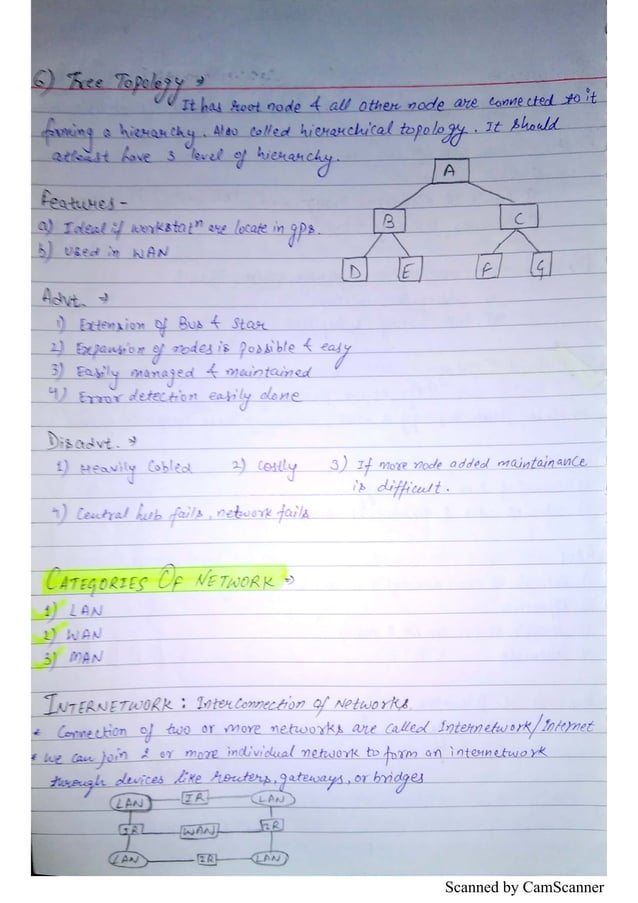 6) Tree Topology →
It has root node & all other node are connected to it
forming a hierarchy. Also called hierarchical topology. It should
atleast have 3 level of hierarchy.
A
Features -
a) Ideal if workstatⁿ are locate in gps.
B
C
b) Used in WAN
D
E
F
G
Advt. →
1) Extension of Bus & Star
2) Expansion of nodes is possible & easy
3) Easily managed & maintained
4) Error detection easily done
Disadvt. →
1) Heavily Cabled 2) Costly 3) If more node added maintainance
is difficult.
4) Central hub fails, network fails
CATEGORIES OF NETWORK →
1) LAN
2) WAN
3) MAN
INTERNETWORK : Interconnection of Networks
* Connection of two or more networks are called Internetwork/Internet
* We can join 2 or more individual network to form an internetwork
through devices like routers, gateways, or bridges
LAN IR LAN
IR WAN IR
LAN IR LAN
Scanned by CamScanner